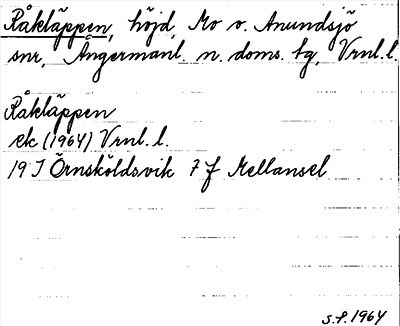 Råkläppen, höjd, Mo o. Anundsjö
snr, Ångermanl. n. doms. tg, Vrnl. l.
Råkläppen
ek (1964) Vrnl. l.
19 I Örnsköldsvik 7 f Mellansel
S.P. 1964